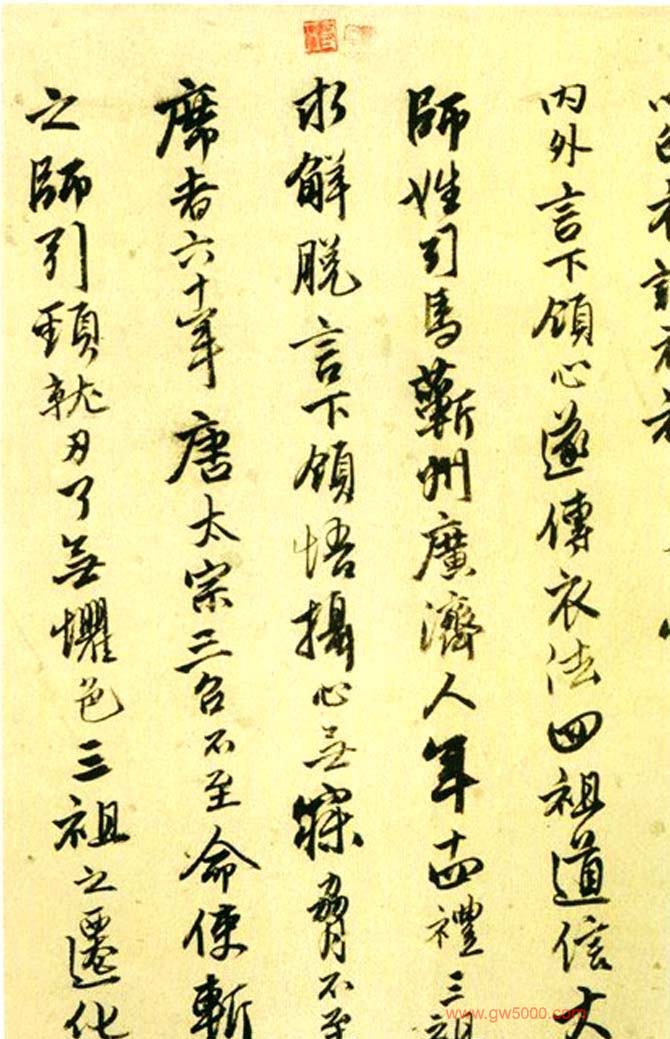 内外言下領心遂傳衣法四祖道信大
師姓司馬蘄州廣濟人年十四禮三祖
求解脱言下領悟攝心無寐脅不至
席者六十年唐太宗三召不至命使斬
之師引頸就刃了無懼色三祖之遷化
www.gw5000.com